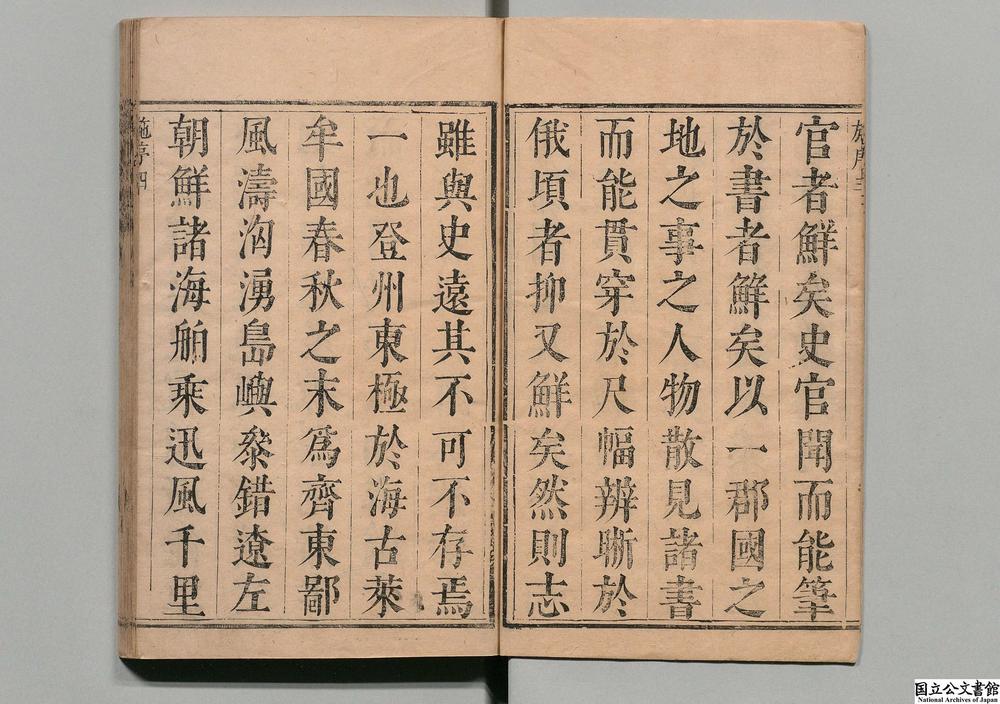 官者鮮矣史官聞而能筆
於書者鮮矣以一郡國之
地之事之人物散見諸書
而能貫穿於尺幅辨晰於
俄頃者抑又鮮矣然則志
雖與史遠其不可不存焉
一也登州東極於海古萊
牟國春秋之末爲齊東鄙
風濤洶湧島嶼叅錯遼左
朝鮮諸海舶乘迅風千里
施序四
国立公文書館
National Archives of Japan